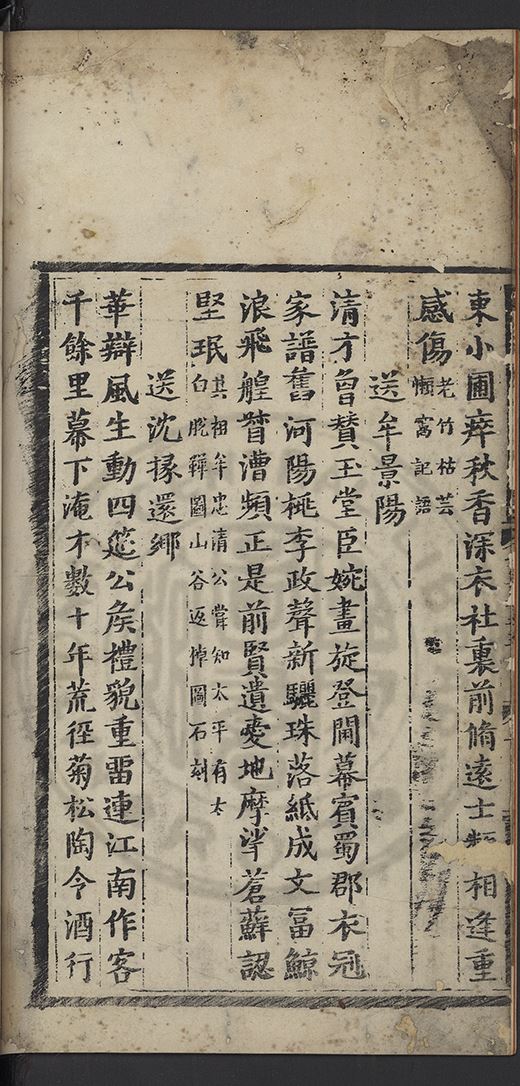 東小圃瘁秋香深衣社裏前脩遠士 相逢重
感傷老竹枯芸
懶窩記語
送牟景陽
清才曾賛玉堂臣婉畫旋登閫幕賓蜀郡衣冠
家譜舊河陽桃李政聲新驪珠落紙成文冨鯨
浪飛艎督漕頻正是前賢遺愛地摩挲蒼蘚認
堅珉其相牟忠清公嘗知太平有太
白脫鞾圖山谷返悼圖石刻
送沈掾還鄉
華辯風生動四筵公矦禮貌重畱連江南作客
千餘里幕下淹才數十年荒徑菊松陶令酒行